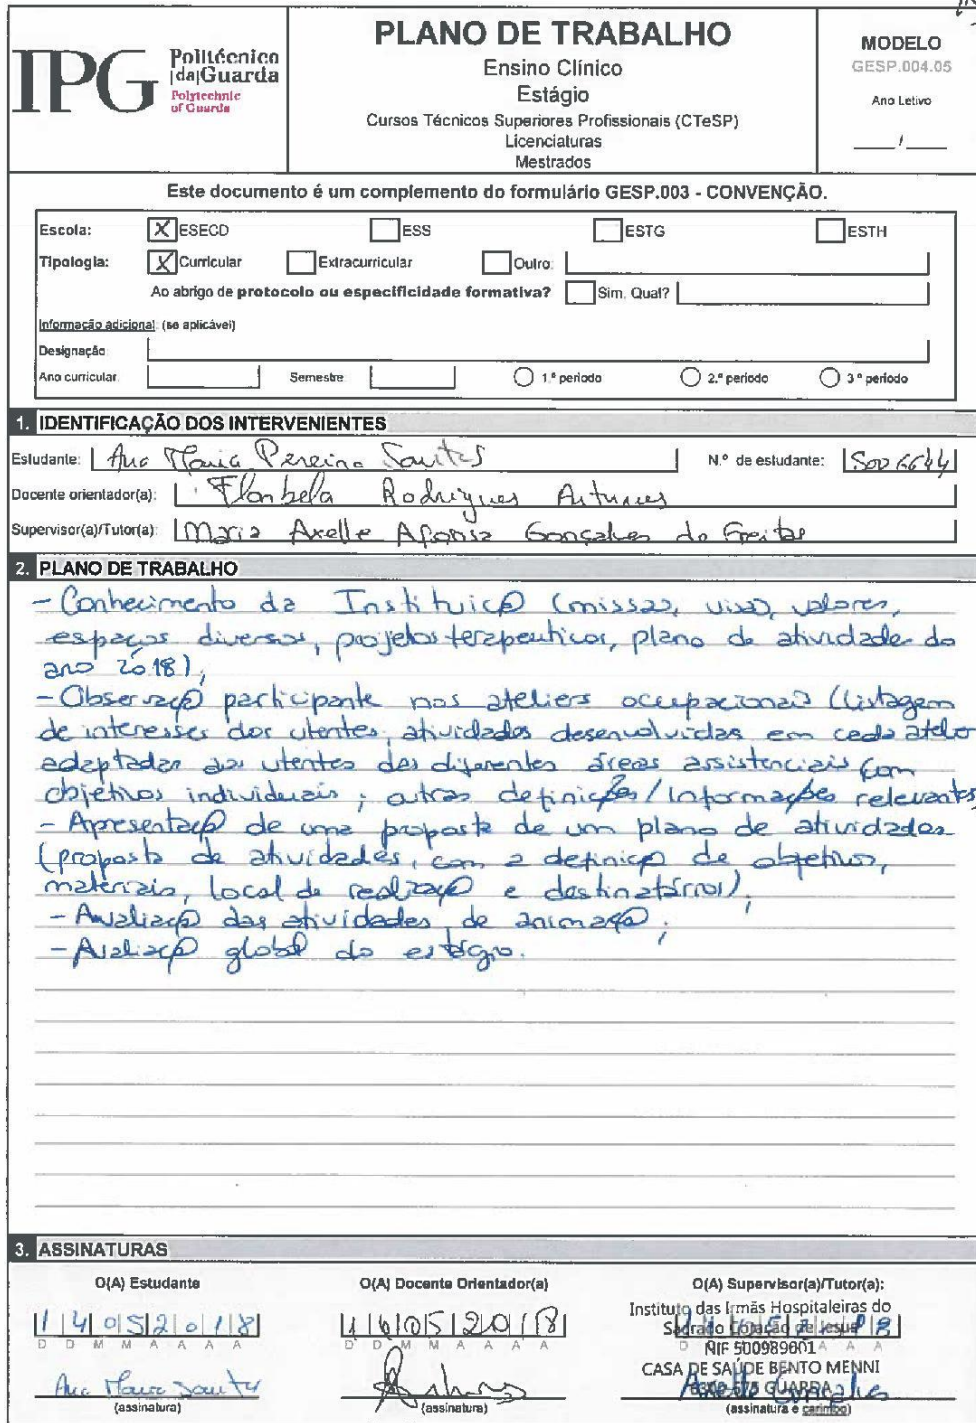 IPG Politécnico |da|Guarda Polytechnic of Guarda
PLANO DE TRABALHO
Ensino Clínico
Estágio
Cursos Técnicos Superiores Profissionais (CTeSP)
Licenciaturas
Mestrados
MODELO
GESP.004.05
Ano Letivo
____/____
Este documento é um complemento do formulário GESP.003 - CONVENÇÃO.
Escola: X ESECD ESS ESTG ESTH
Tipologia: X Curricular Extracurricular Outro:
Ao abrigo de protocolo ou especificidade formativa? Sim. Qual?
Informação adicional: (se aplicável)
Designação
Ano curricular: Semestre: 1.º período 2.º período 3.º período
1. IDENTIFICAÇÃO DOS INTERVENIENTES
Estudante: Ana Maria Pereira Santos N.º de estudante: 5006644
Docente orientador(a): Florbela Rodrigues Antunes
Supervisor(a)/Tutor(a): Maria Axelle Afonso Gonçalves de Freitas
2. PLANO DE TRABALHO
- Conhecimento da Instituição (missão, visão, valores,
espaços diversos, projetos terapeuticos, plano de atividade do
ano 2018);
- Observação participante nos ateliers ocupacionais (listagem
de interesses dos utentes, atividades desenvolvidas em cada atelier
adaptadas aos utentes das diferentes áreas assistenciais com
objetivos individuais; outras definições/informações relevantes
- Apresentação de uma proposta de um plano de atividades
(proposta de atividades, com a definição de objetivos,
materiais, local de realização e destinatários);
- Avaliação das atividades de animação;
- Avaliação global do estágio.
3. ASSINATURAS
O(A) Estudante O(A) Docente Orientador(a) O(A) Supervisor(a)/Tutor(a):
14052018 16052018
D D M M A A A A D D M M A A A A
Instituto das Irmãs Hospitaleiras do
Sagrado Coração de Jesus
NIF 500989601
CASA DE SAÚDE BENTO MENNI
GUARDA
Ana Maria Santos Axelle Gonçalves
(assinatura) (assinatura) (assinatura e carimbo)